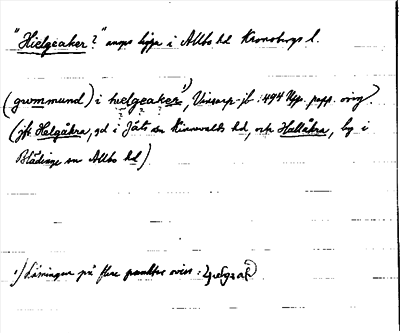 "Hielgeaker?" anges ligga i Allbo hd Kronobergs l.
(gudmmund) i helgeaker 1), Vinsarp jb :494 Upps. papp. orig.
(jfr Helgåkra, gd i Jäts sn Kinnevalds hd, och Hallåkra, by i
Blädinge sn Allbo hd)
1) Läsningen på flere punkter oviss: